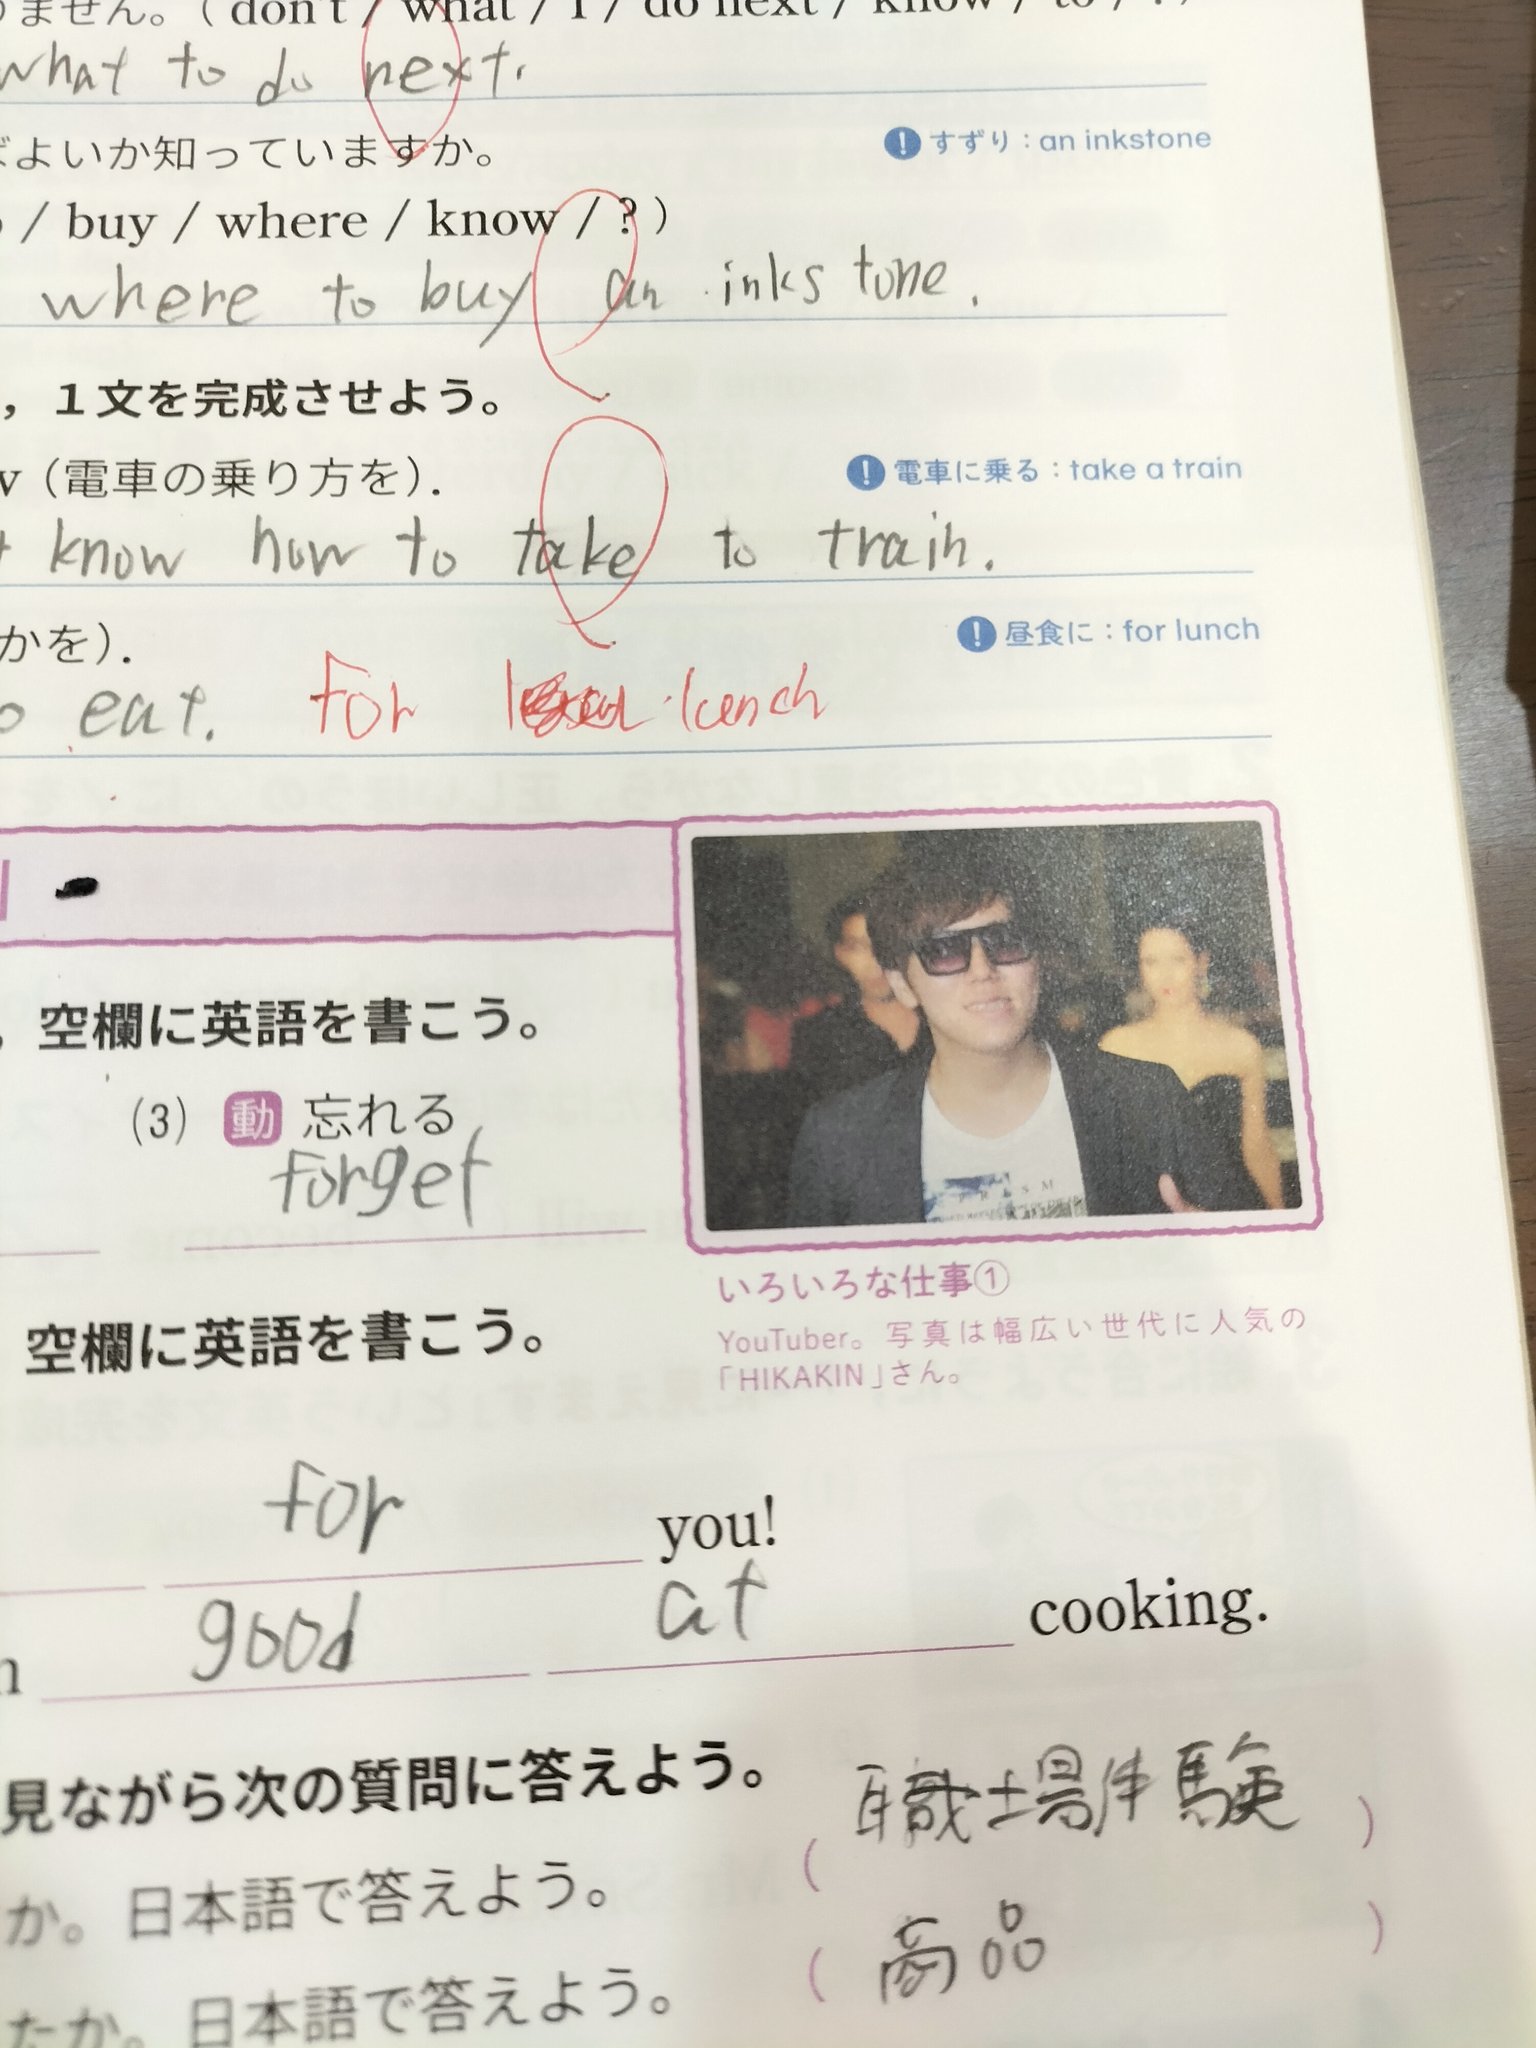 ません。( don't / what / I / do next / know / to / . )
what to do next.
ばよいか知っていますか。
! すずり：an inkstone
/ buy / where / know / ? )
where to buy an inks tone.
，１文を完成させよう。
(電車の乗り方を).
! 電車に乗る：take a train
know how to take to train.
かを).
! 昼食に：for lunch
eat. for lunch
，空欄に英語を書こう。
(3) 動 忘れる
forget
PRISM
いろいろな仕事①
YouTuber。写真は幅広い世代に人気の
「HIKAKIN」さん。
空欄に英語を書こう。
for you!
good at cooking.
見ながら次の質問に答えよう。
か。日本語で答えよう。 ( 職場体験 )
たか。日本語で答えよう。 ( 商品 )